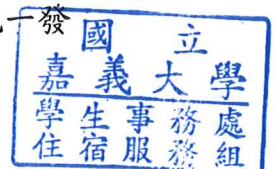 一發
國立
嘉義大學
學生事務處
住宿服務組